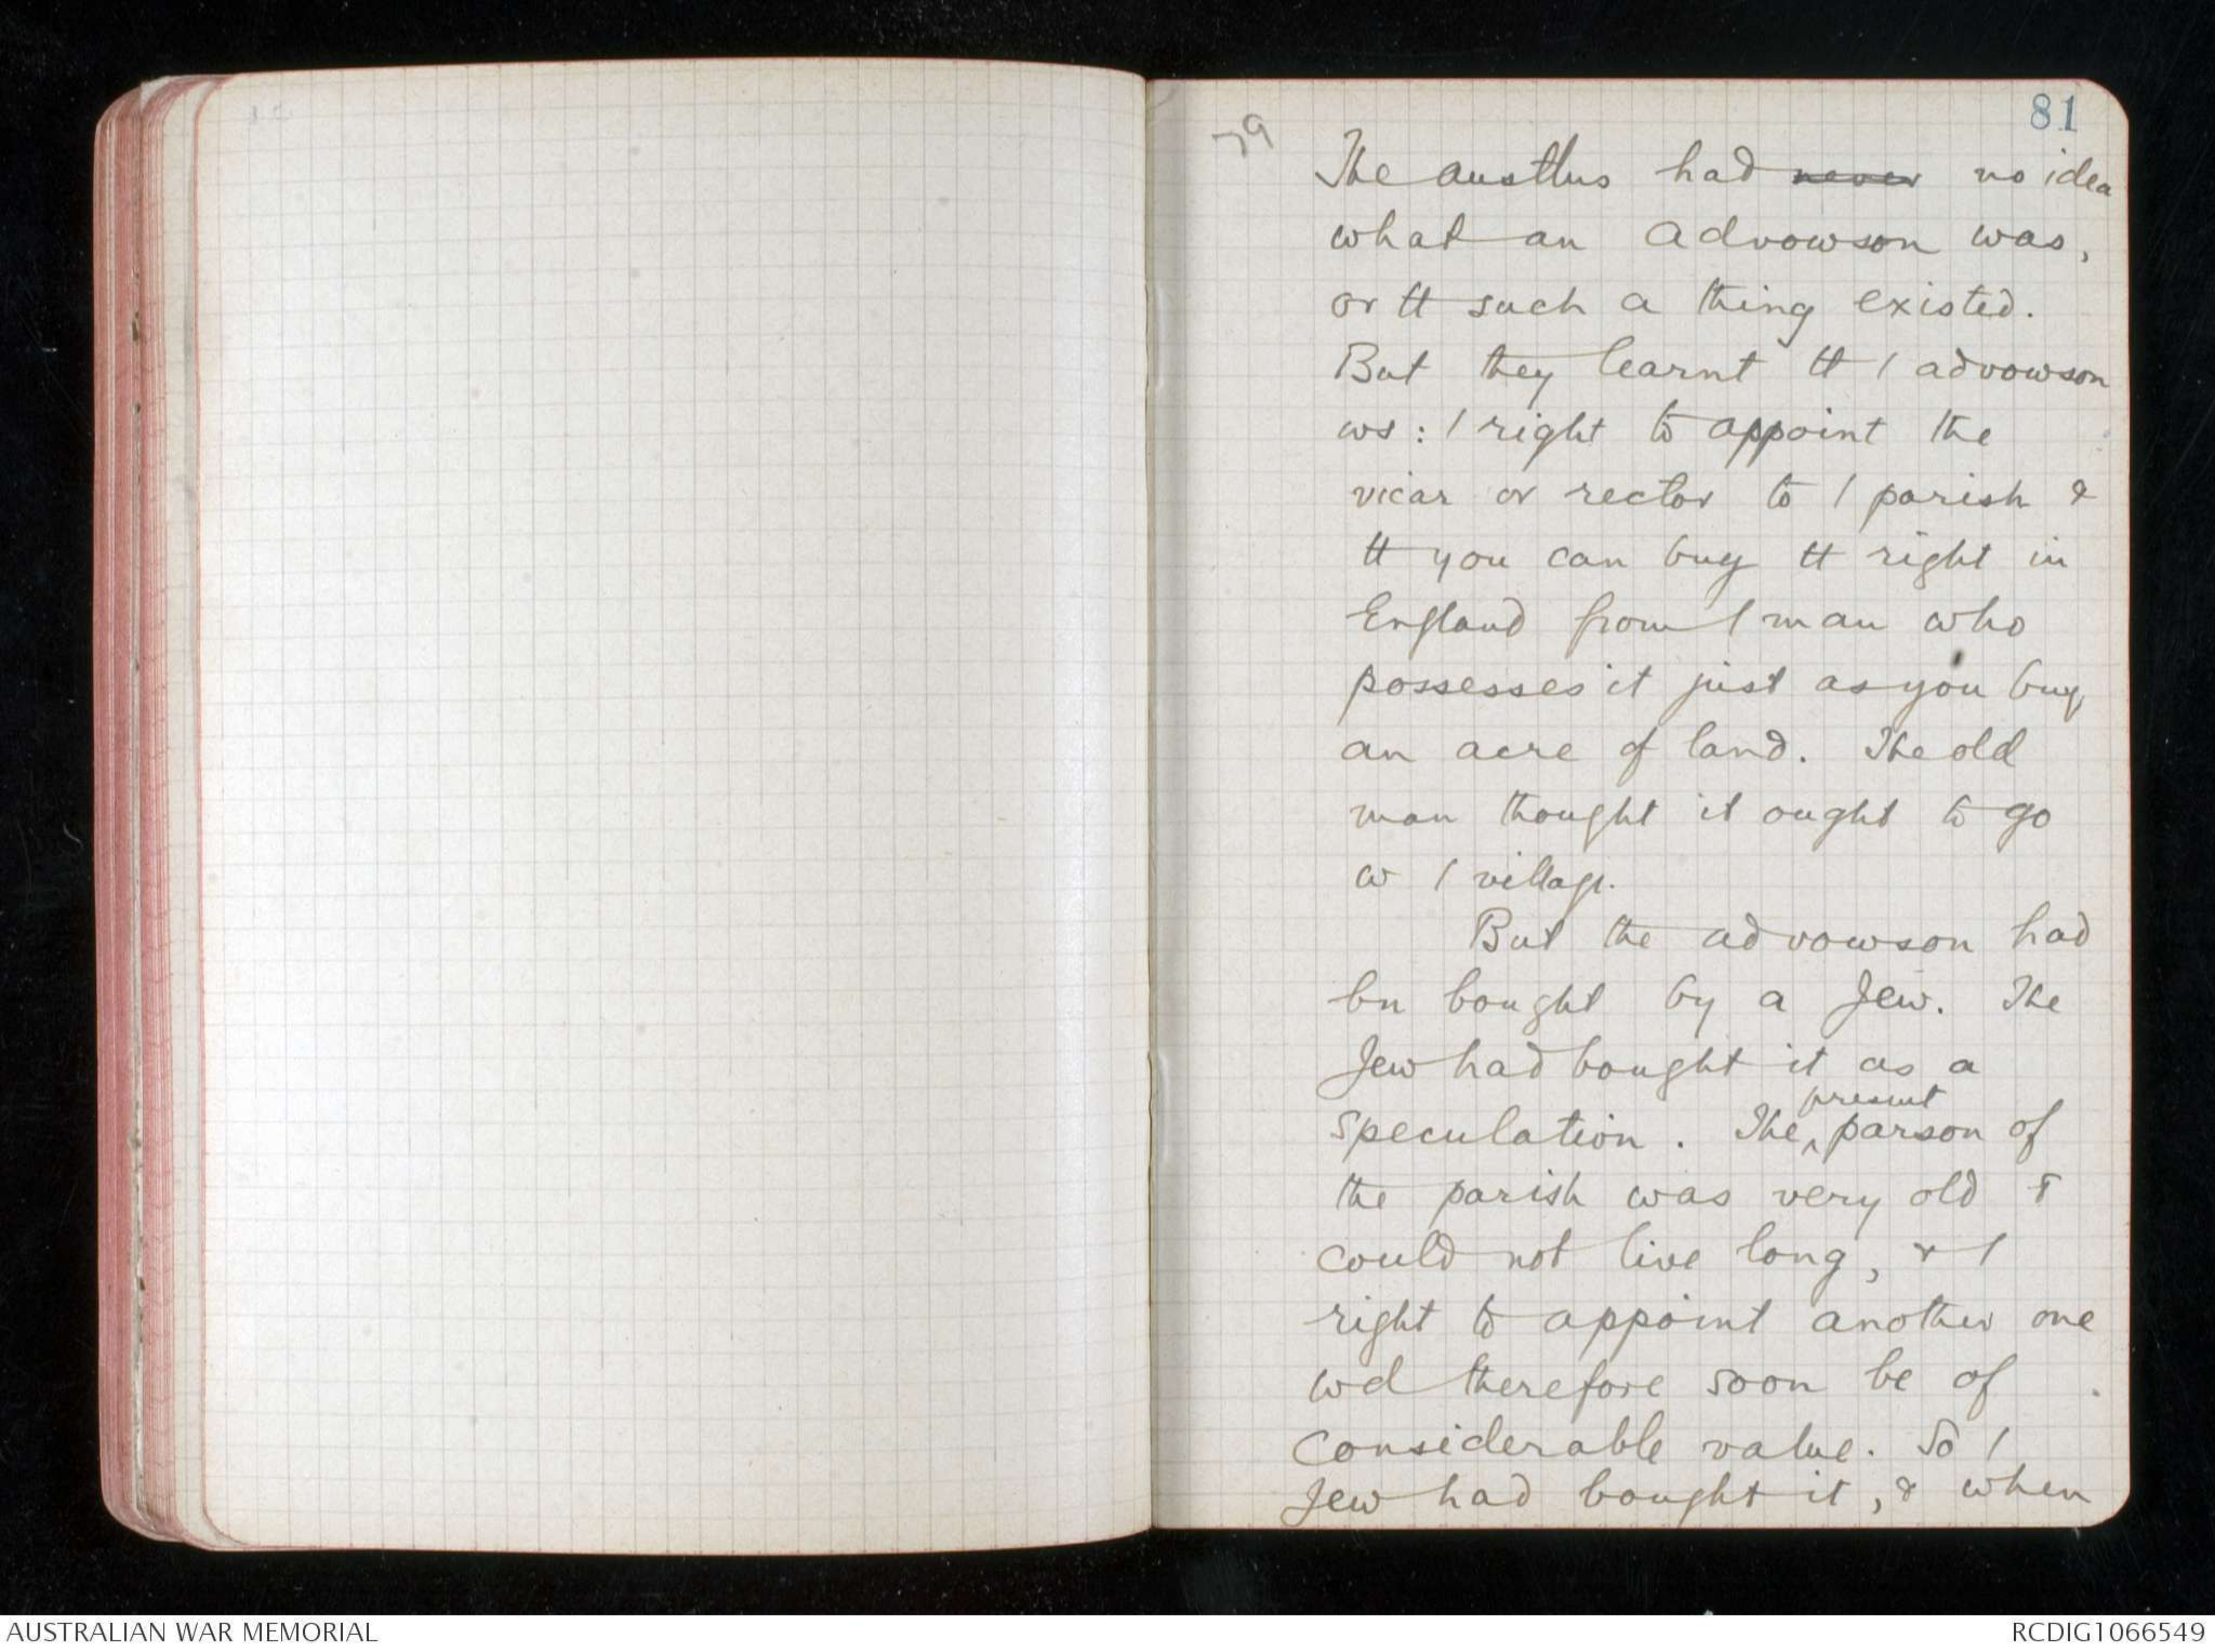 81
79
The austlns had never no idea
what an advowson was,
or tt such a thing existed.
But they learnt tt / advowson
ws : / right to appoint the
vicar or rector to / parish &
tt you can buy tt right in
England from / man who
possesses it just as you buy
an acre of land. The old
man thought it ought to go
w / village.
But the advowson had
bn bought by a Jew. The
Jew had bought it as a
present
speculation. The ^ parson of
the parish was very old &
could not live long, & /
right to appoint another one
wd therefore soon be of
considerable value. So /
Jew had bought it, & when
AUSTRALIAN WAR MEMORIAL
RCDIG1066549